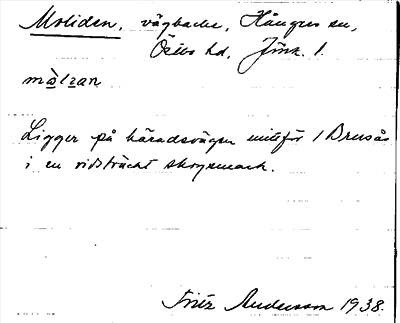 Moliden, vägbacke, Hångers sn,
Östbo hd, Jönk. l.
mὰlran
Ligger på häradsvägen mitt för / Brusås
i en vidsträckt skogsmark.
Fritz Andersson 1938.